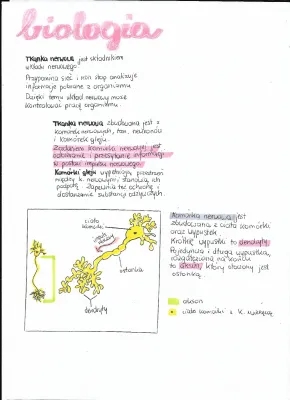 biologia
Tkanka nerwowa jest składnikiem
układu nerwowego.
Przypomina sieć i non stop analizuje
informacje pobrane z organizmu
Dzięki temu układ nerwowy może
kontrolować pracę organizmu.
Tkanka nerwowa zbudowana jest z
komórek nerwowych, tzw. neuronów
i komórek gleju.
Zadaniem komórki nerwowej jest
odbieranie i przesyłanie informacji
w postaci impulsu nerwowego.
Komórki gleju wypełniają przestrzeń
między k. nerwowymi stanowią ich
podporę. Zapewnia też ochronę i
dostarczanie substancji odżywczych.
ciało
komórki
osłonka
dendryty
Komórka nerwowa jest
zbudowana z ciała komórki
oraz wypustek.
Krótkie wypustki to dendryty.
Pojedyncza i długa wypustka,
rozgałęziona na końcu
to akson, który otoczony jest
osłonką.
akson
ciało komórki